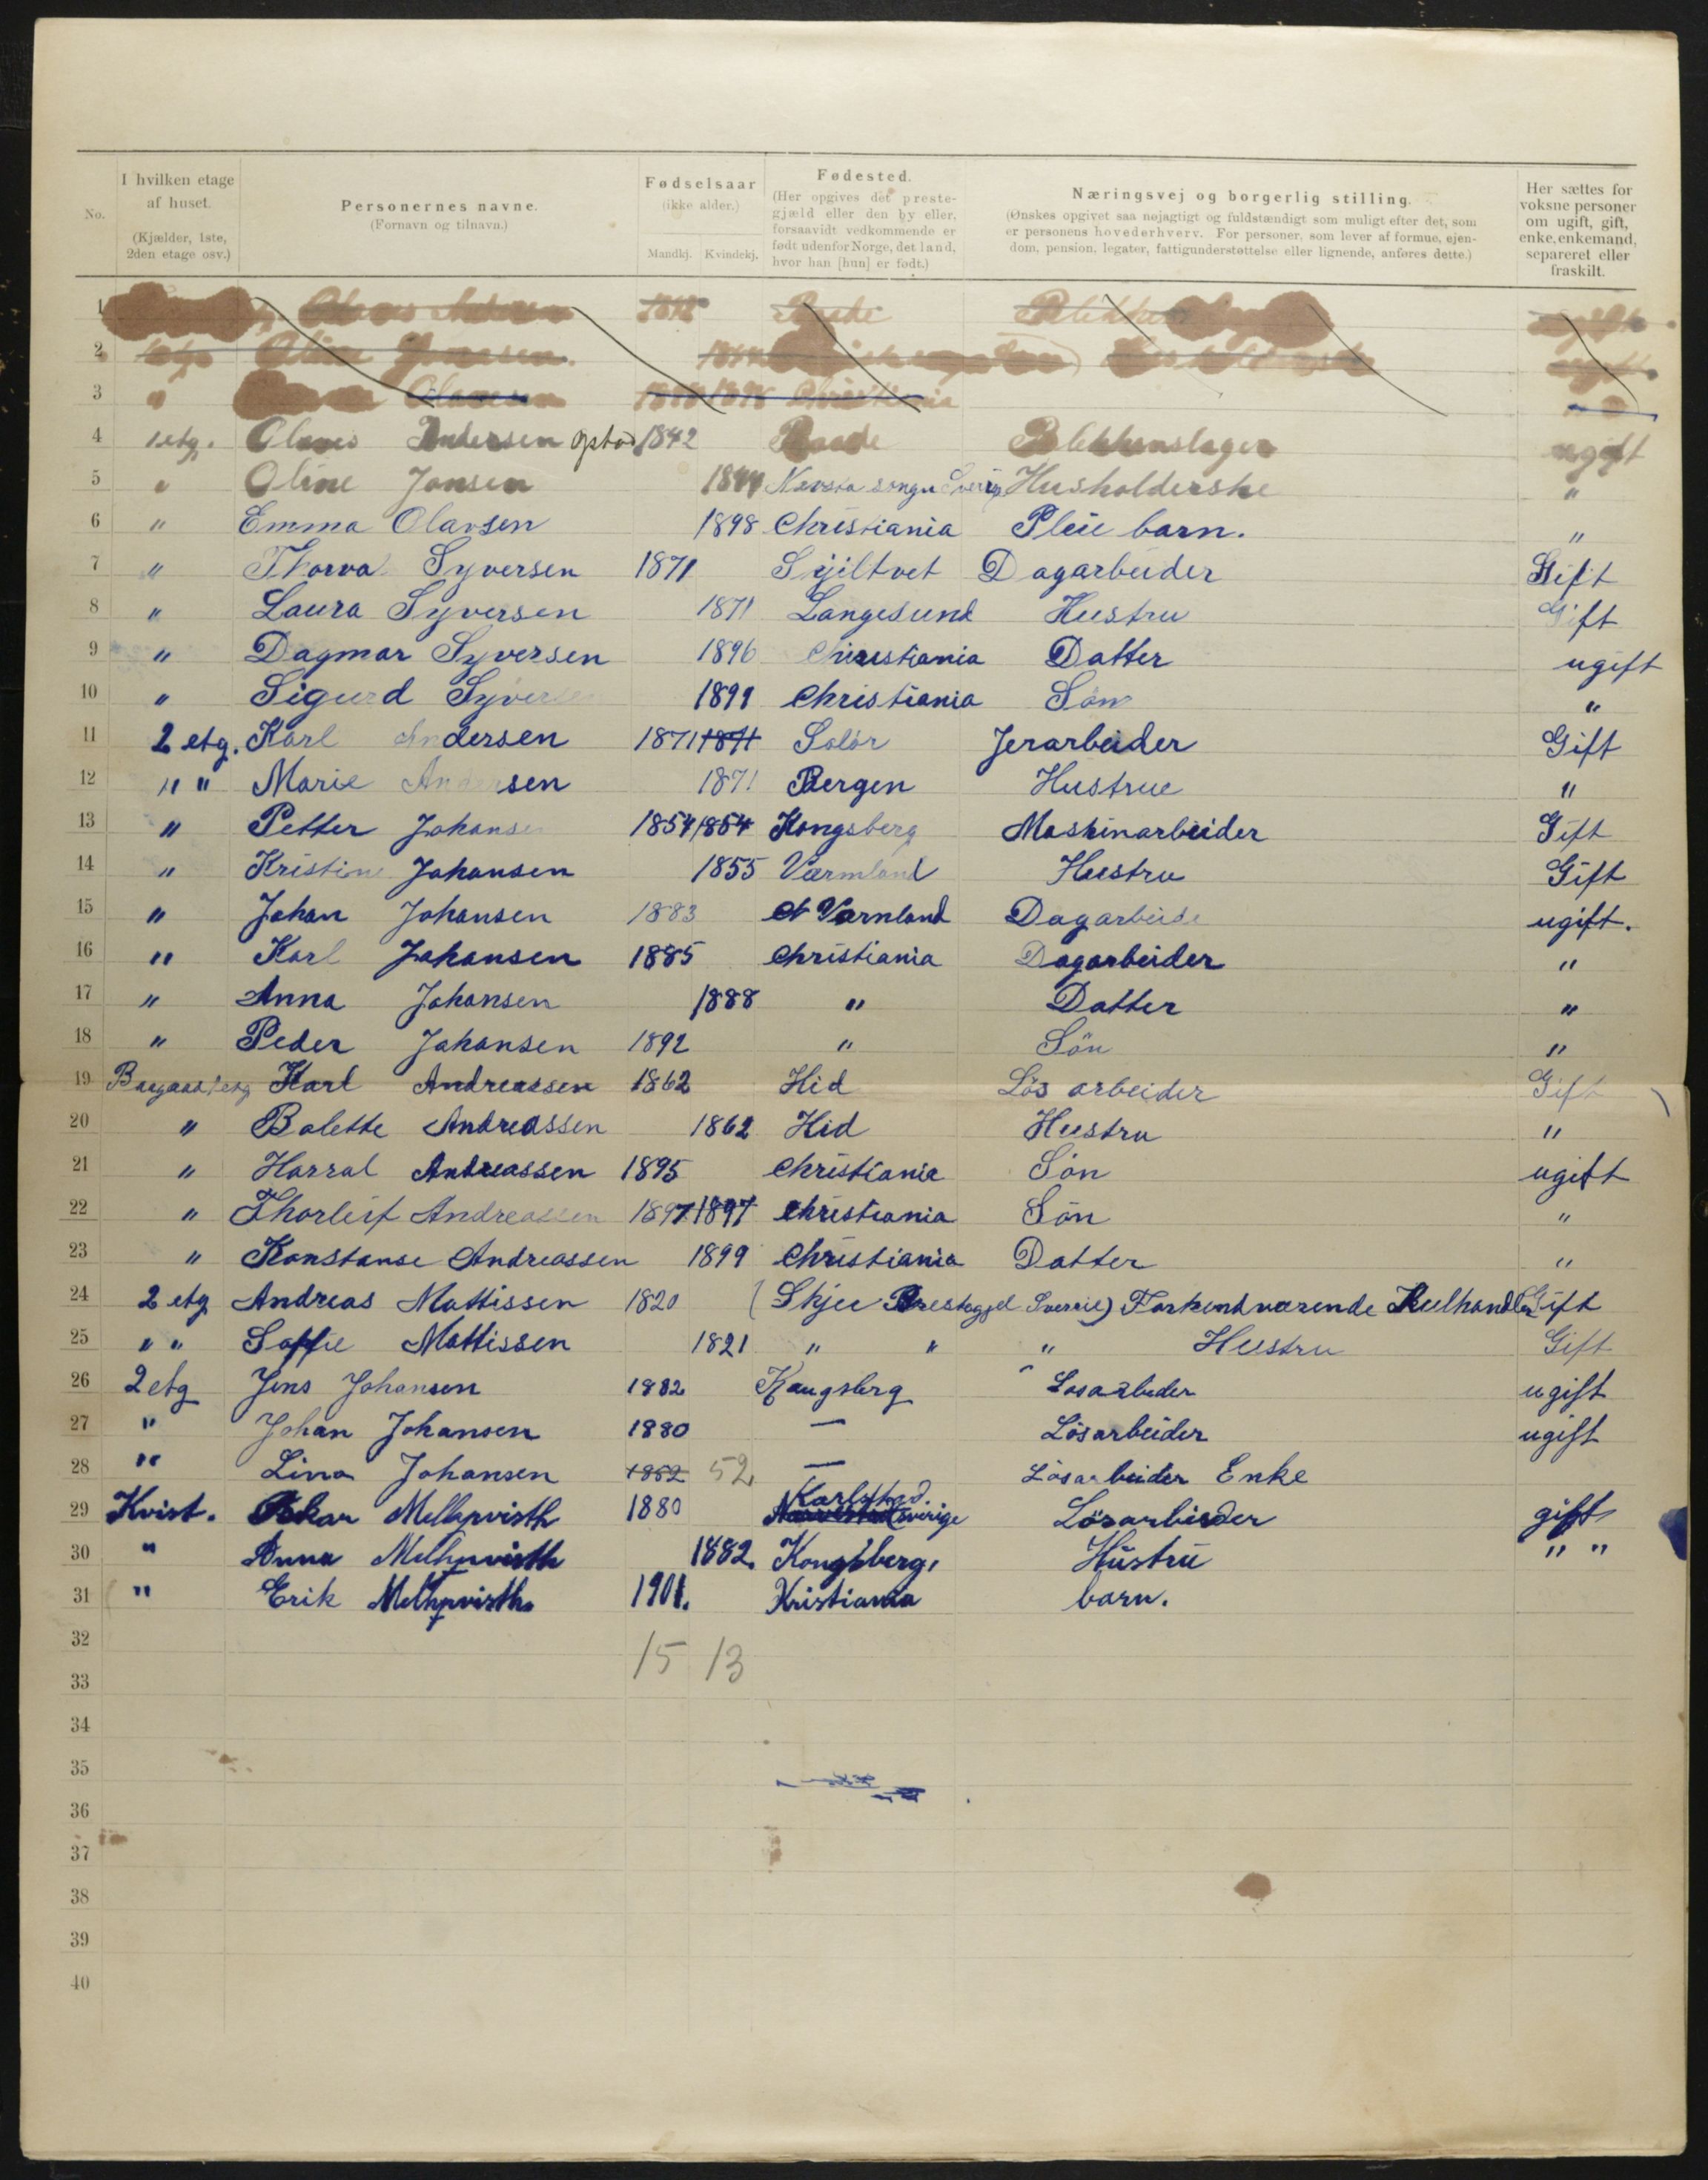 No.
I hvilken etage af huset.
(Kjælder, 1ste, 2den etage osv.)
Personernes navne.
(Fornavn og tilnavn.)
Fødselsaar
(ikke alder.)
Mandkj. Kvindekj.
Fødested.
(Her opgives det preste-
gjæld eller den by eller,
forsaavidt vedkommende er
født udenfor Norge, det land,
hvor han [hun] er født.)
Næringsvej og borgerlig stilling.
(Ønskes opgivet saa nøjagtigt og fuldstændigt som muligt efter det, som
er personens hovederhverv. For personer, som lever af formue, ejen-
dom, pension, legater, fattigunderstøttelse eller lignende, anføres dette.)
Her sættes for
voksne personer
om ugift, gift,
enke, enkemand,
separeret eller
fraskilt.
1
2 Oline
3 " Christiania
4 1 etg. Andersen 1842 Raade Blikkenslager ugift
5 " Oline Jonsen 1844 Husholderske "
6 " Emma Olavsen 1898 Christiania Pleie barn. "
7 " Thorval Syversen 1871 Dagarbeider Gift
8 " Laura Syversen 1871 Langesund Hustru Gift
9 " Dagmar Syversen 1896 Christiania Datter ugift
10 " Sigurd Syversen 1899 Christiania Sön "
11 2 etg. Karl Andersen 1871 1871 Solör Jerarbeider Gift
12 " " Marie Andersen 1871 Bergen Hustrue "
13 " Petter Johansen 1854 1854 Kongsberg Maskinarbeider Gift
14 " Kristine Johansen 1855 Värmland Hustru Gift
15 " Johan Johansen 1883 Varnland Dagarbeide ugift.
16 " Karl Johansen 1885 Christiania Dagarbeider "
17 " Anna Johansen 1888 " Datter "
18 " Peder Johansen 1892 " Sön "
19 Karl Andreassen 1862 Hid Lös arbeider Gift
20 " Bolette Andreassen 1862 Hid Hustru "
21 " Harral Andreassen 1895 Christiania Sön ugift
22 " Thorleif Andreassen 1897 1897 Christiania Sön "
23 " Konstanse Andreassen 1899 Christiania Datter "
24 2 etg Andreas Mattissen 1820 (Skjee Prestegjel Sverrie) Forhendværende Kulhandler Gift
25 " " Soffie Mattissen 1821 " " " Hustru Gift
26 2 etg Jens Johansen 1882 Kongsberg Losarbeder ugift
27 " Johan Johansen 1880 — Lösarbeider ugift
28 " Lina Johansen 1852 52 — Lösarbeider Enke
29 Kvist. Oskar 1880 Karlstad. Sverige Lösarbeider gift
30 " Anna 1882. Kongsberg, Hustru " "
31 " Erik 1901. Kristiania barn.
32 15 13
33
34
35
36
37
38
39
40